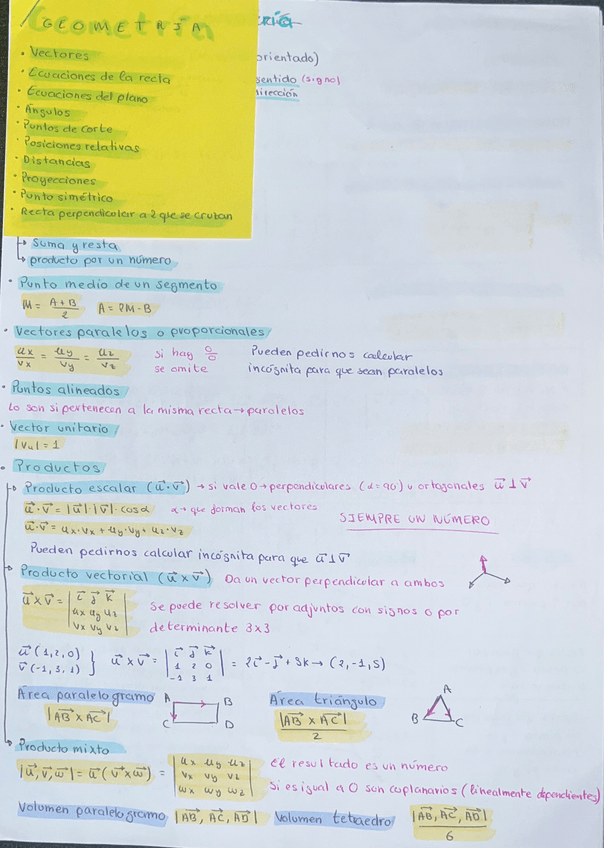 GEOMETRIA
• Vectores
• Ecuaciones de la recta
• Ecuaciones del plano
• Ángulos
• Puntos de corte
• Posiciones relativas
• Distancias
• Proyecciones
• Punto simétrico
• Recta perpendicular a 2 que se cruzan
orientado)
sentido (signo)
dirección
↳ suma y resta
↳ producto por un número
• Punto medio de un segmento
M = (A+B)/2 A = 2M - B
• Vectores paralelos o proporcionales
ux/vx = uy/vy = uz/vz si hay 0/0 se omite Pueden pedirnos calcular
incógnita para que sean paralelos
• Puntos alineados
Lo son si pertenecen a la misma recta → paralelos
• Vector unitario
|Vu| = 1
• Productos
Producto escalar (u⃗·v⃗) → si vale 0 → perpendiculares (α = 90°) u ortogonales u⃗ ⊥ v⃗
u⃗·v⃗ = |u⃗|·|v⃗|·cosα α → que forman los vectores
u⃗·v⃗ = ux·vx + uy·vy + uz·vz SIEMPRE UN NÚMERO
Pueden pedirnos calcular incógnita para que u⃗ ⊥ v⃗
Producto vectorial (u⃗ x v⃗) Da un vector perpendicular a ambos
u⃗ x v⃗ = | i⃗ j⃗ k⃗ |
| ux uy uz | Se puede resolver por adjuntos con signos o por
| vx vy vz | determinante 3x3
u⃗ (1,2,0)
v⃗ (-1,3,1) } u⃗ x v⃗ = | i⃗ j⃗ k⃗ |
| 1 2 0 | = 2i⃗ - j⃗ + 5k → (2,-1,5)
| -1 3 1 |
Área paralelogramo A B C D Área triángulo A B C
|AB⃗ x AC⃗| |AB⃗ x AC⃗|/2
Producto mixto
|u⃗, v⃗, w⃗| = u⃗ (v⃗ x w⃗) = | ux uy uz | el resultado es un número
| vx vy vz |
| wx wy wz | Si es igual a 0 son coplanarios (linealmente dependientes)
Volumen paralelogramo |AB⃗, AC⃗, AD⃗| Volumen tetraedro |AB⃗, AC⃗, AD⃗|/6